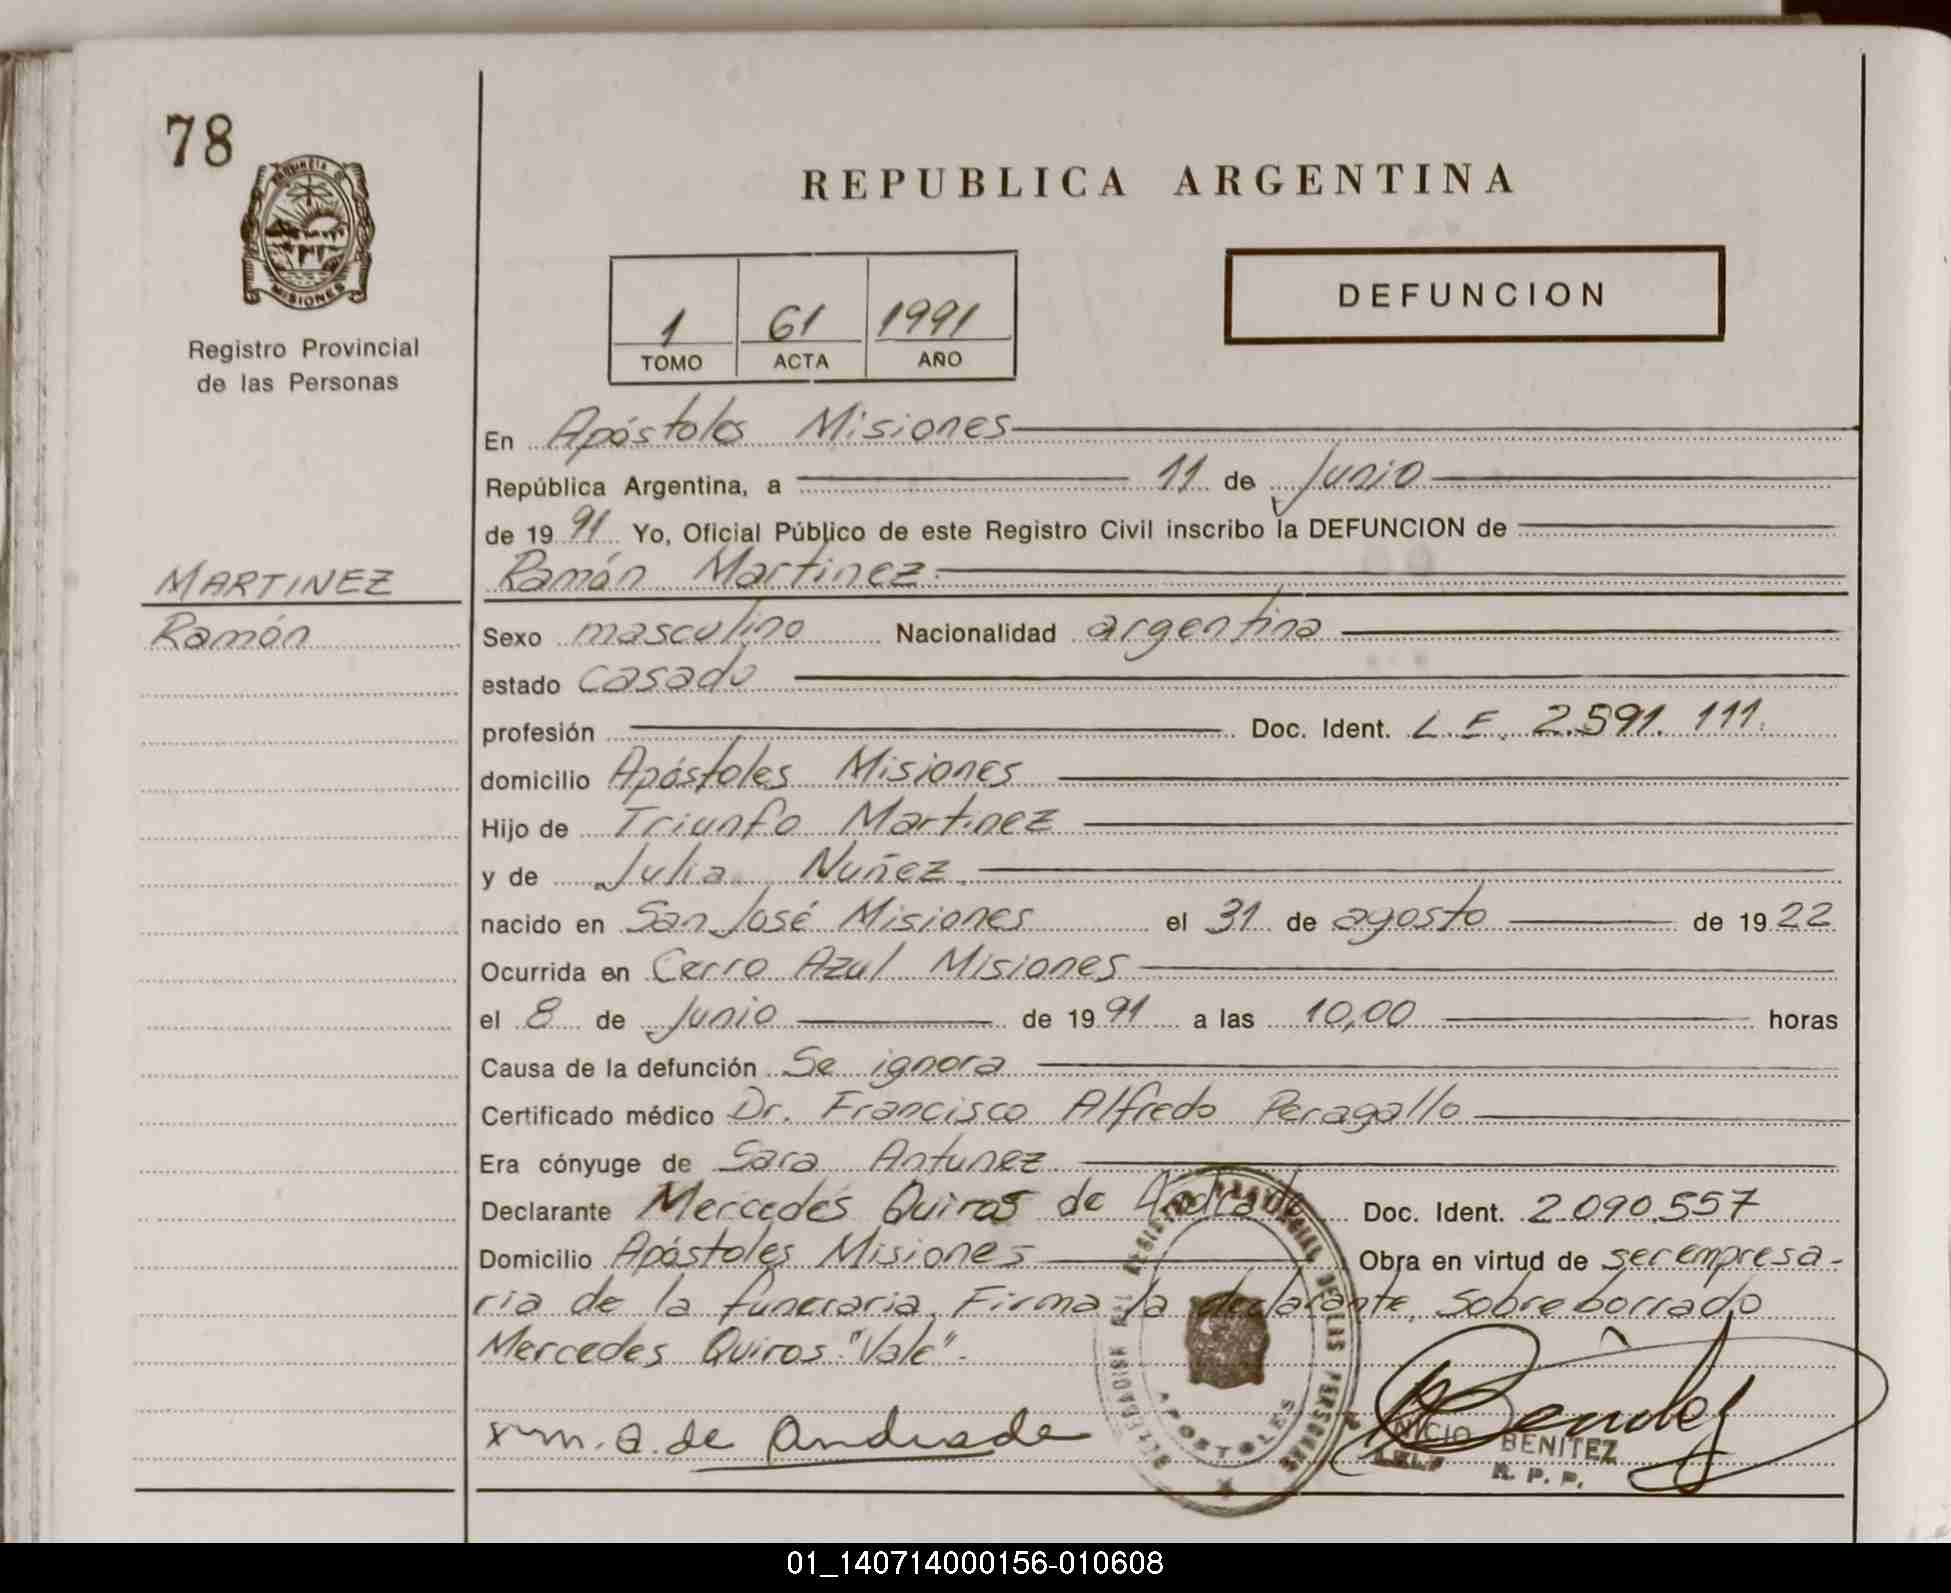 78
PROVINCIA DE
MISIONES
Registro Provincial
de las Personas
REPUBLICA ARGENTINA
1 61 1991
TOMO ACTA AÑO
DEFUNCION
En Apóstoles Misiones
República Argentina, a 11 de Junio
de 1991 Yo, Oficial Público de este Registro Civil inscribo la DEFUNCION de
MARTINEZ
Ramón
Ramón Martinez
Sexo masculino Nacionalidad argentina
estado casado
profesión Doc. Ident. L.E. 2.591.111.
domicilio Apóstoles Misiones
Hijo de Triunfo Martinez
y de Julia Nuñez
nacido en San José Misiones el 31 de agosto de 1922
Ocurrida en Cerro Azul Misiones
el 8 de Junio de 1991 a las 10,00 horas
Causa de la defunción Se ignora
Certificado médico Dr. Francisco Alfredo Peragallo
Era cónyuge de Sara Antunez
Declarante Mercedes Quiros de Andrade Doc. Ident. 2.090.557
Domicilio Apóstoles Misiones Obra en virtud de ser empresa-
ria de la funeraria. Firma la declarante, Sobreborrado
Mercedes Quiros "Vale".
DELEGACION DEL REGISTRO PROVINCIAL DE LAS PERSONAS
APOSTOLES
m. Q. de Andrade
BENITEZ
R. P. P.
01_140714000156-010608